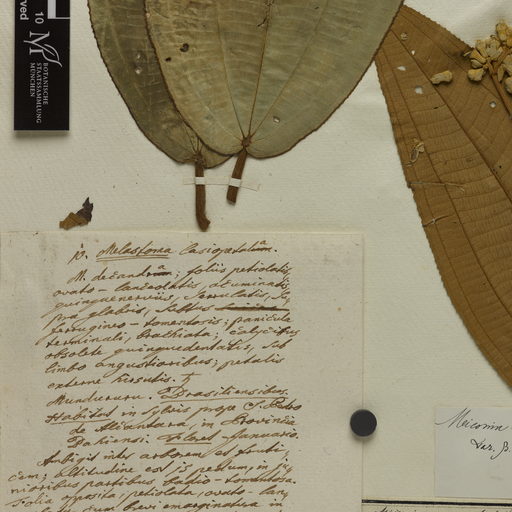 10
BOTANISCHE
STAATSSAMMLUNG
MÜNCHEN
10. Melastoma lasiopetalum.
M. decandra; foliis petiolatis,
ovato-lanceolatis, acuminatis,
quinquenerviis, serrulatis, su,
pra glabris, subtus
ferrugineo-tomentosis; panicula
terminali, brachiata; calycibus
obsolete quinquedentatis, sub
limbo angustioribus; petalis
externe hirsutis. ♄
Mundururu. Brasiliensibus.
Habitat in sylvis prope S. Pedro
de Alcantara, in Provincia
Bahiensi. Floret Januario.
Ambigit inter arborem et fruti,
cem; altitudine est 15 pedum, in ju,
nioribus partibus badio-tomentosa.
Folia opposita, petiolata, ovato-lan,
cum brevi emarginatura in
Miconia
Var. β.